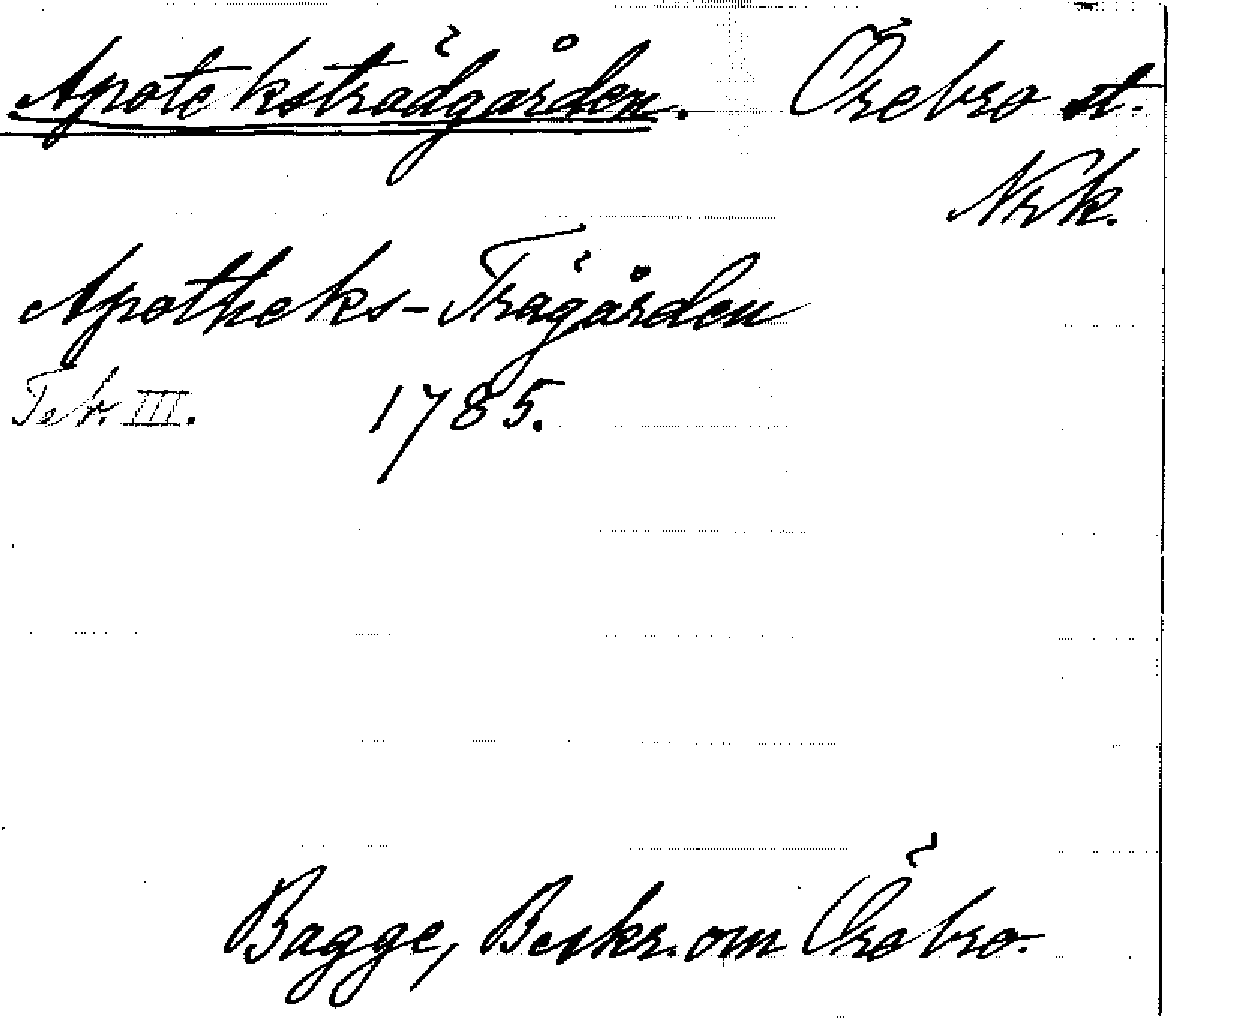 Apoteksträdgården. Örebro st.
Nrk.
Apotheks-Trägården
Tek. III. 1785.
Bagge, Beskr. om Örebro.